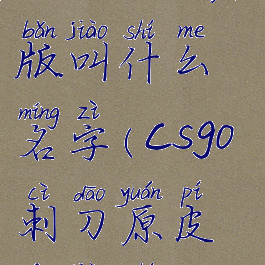 bǎn jiào shí me
版叫什么
míng zì
名字(csgo
cì dāo yuán pí
刺刀原皮